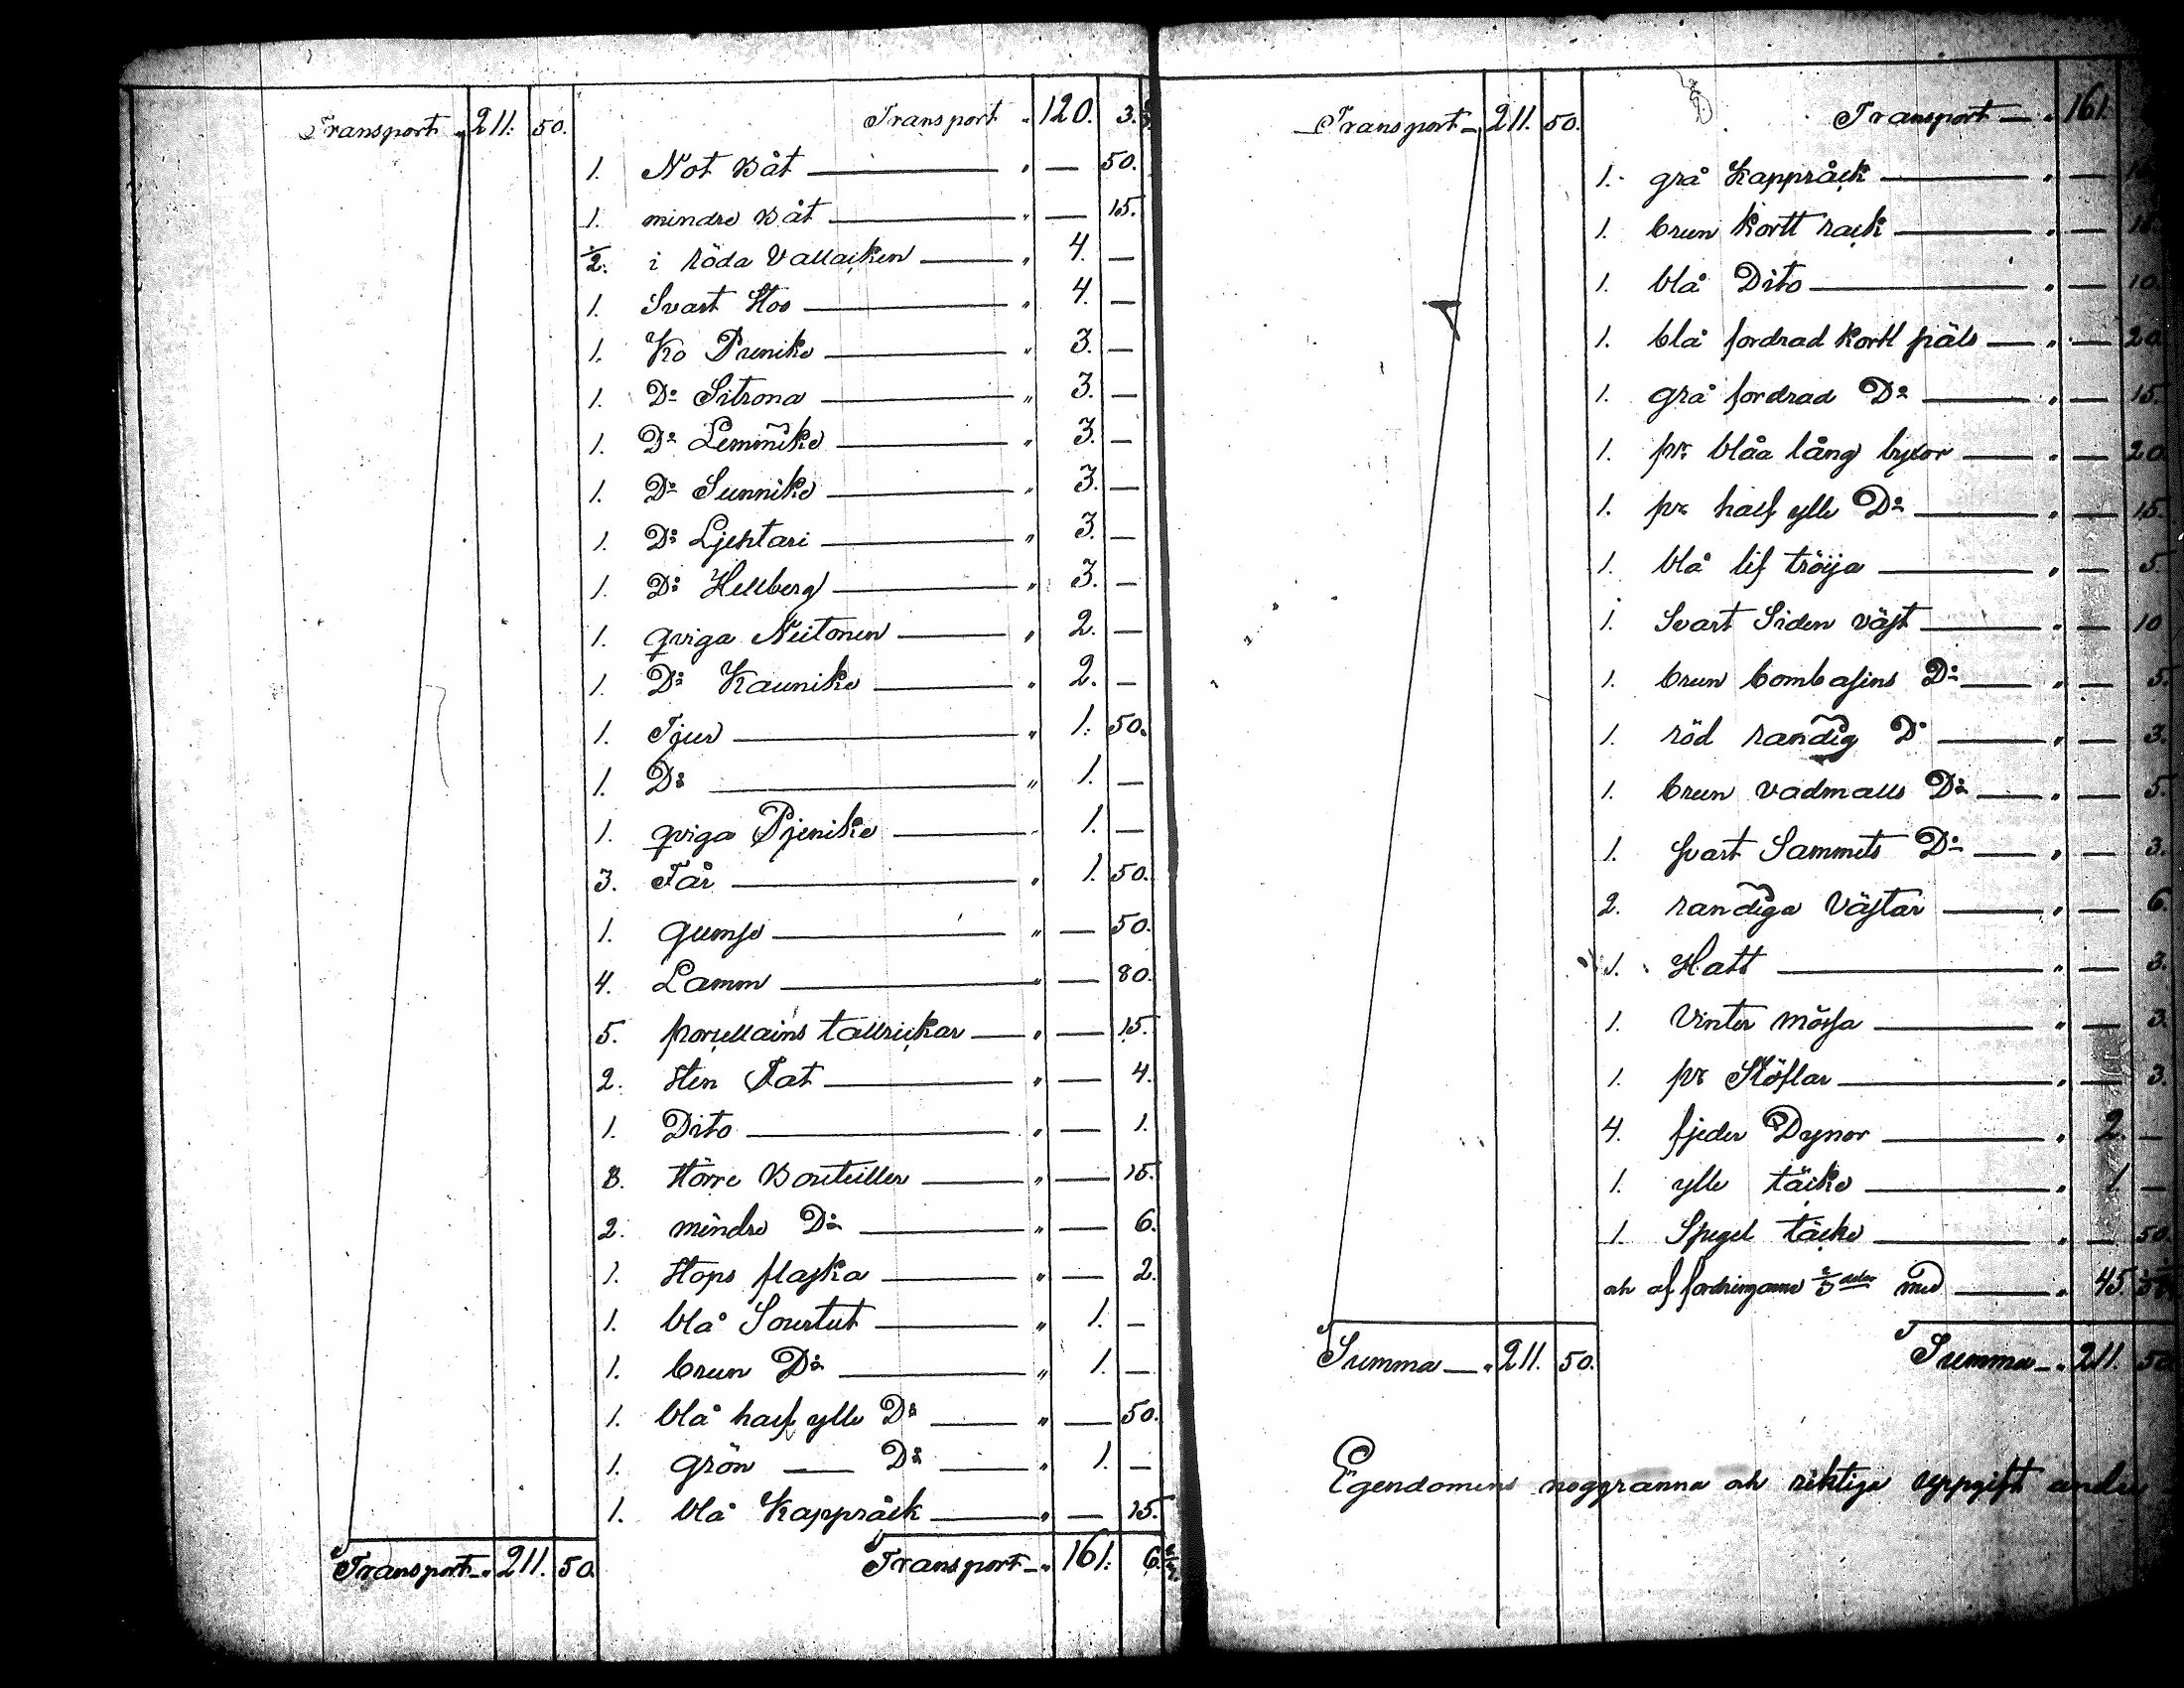 Transport „ 211. 50.
Transport „ 120. 3.
1. Not Båt — „ — 50.
1. mindre Båt — „ — 15.
1/2. i röda Vallacken — „ 4. —
1. Svart Stoo — „ 4. —
1. Ko Prunike — „ 3. —
1. Do Sitrona — „ 3. —
1. Do Lemmike — „ 3. —
1. Do Sunnike — „ 3. —
1. Do Ljehtari — „ 3. —
1. Do Hellberg — „ 3. —
1. qviga Neitonen — „ 2. —
1. Do Kaunike — „ 2. —
1. Tjur — „ 1. 50.
1. Do — „ 1. —
1. qviga Pjenike — „ 1. —
3. Får — „ 1. 50.
1. gumse — „ — 50.
4. Lamm — „ — 80.
5. porcellains tallrickar — „ — 15.
2. Sten Fat — „ — 4.
1. Dito — „ — 1.
8. större Bouteiller — „ — 15.
2. mindre Do — „ — 6.
1. Stops flaska — „ — 2.
1. blå Sourtut — „ 1. —
1. brun Do — „ 1. —
1. blå half ylle Do — „ — 50.
1. grön — Do — „ 1. —
1. blå Kappråck — „ — 15.
Transport „ 211. 50.
Transport — „ 161. 6.
Transport „ 211. 50.
Transport — „ 161.
1. grå Kappråck — „ —
1. brun kortt rack — „ —
1. blå Dito — „ — 10.
1. blå fordrad kortt päls — „ — 20.
1. grå fordrad Do — „ — 15.
1. pr blåa lång byxor — „ — 20.
1. pr half ylle Do — „ — 15.
1. blå lif tröija — „ — 5.
1. Svart Siden väst — „ — 10
1. brun bombasins Do — „ — 5.
1. röd randig Do — „ — 3.
1. brun vadmalls Do — „ — 5.
1. svart Sammets Do — „ — 3.
2. randiga Västar — „ — 6.
1. Hatt — „ — 3.
1. Vinter mössa — „ — 3.
1. pr Stöflar — „ — 3.
4. fjeder Dynor — „ 2. —
1. ylle täcke — „ 1. —
1. Spegel täcke — „ — 50.
och af fordringarne 2/3 delar med — „ 45.
Summa — „ 211. 50.
Summa — „ 211. 50
Egendomens noggranna och riktiga uppgift